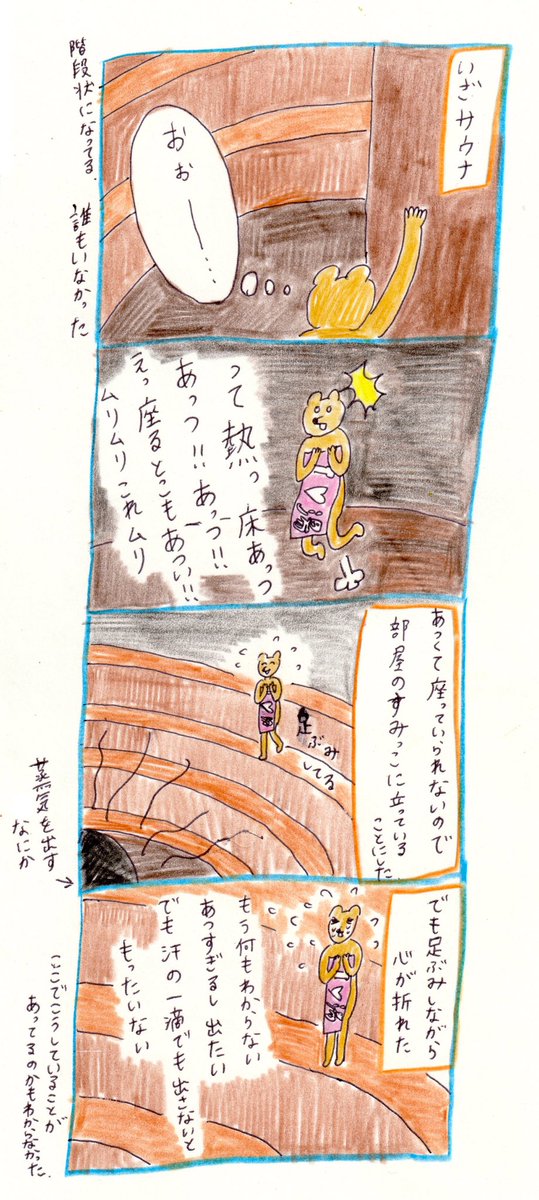 いざサウナ
おぉー…
階段状になってる
誰もいなかった
って熱っ床あっつ
あっつ!!あっつ!!
えっ座るとこもあつい!!
ムリムリこれムリ
あっくて座っていられないので
部屋のすみっこに立っている
ことにした
足ぶみ
してる
蒸気を出す
なにか
でも足ぶみしながら
心が折れた
もう何もわからない
あっすぎるし出たい
でも汗の一滴でも出さないと
もったいない
ここでこうしていることが
あってるのかもわからなかった